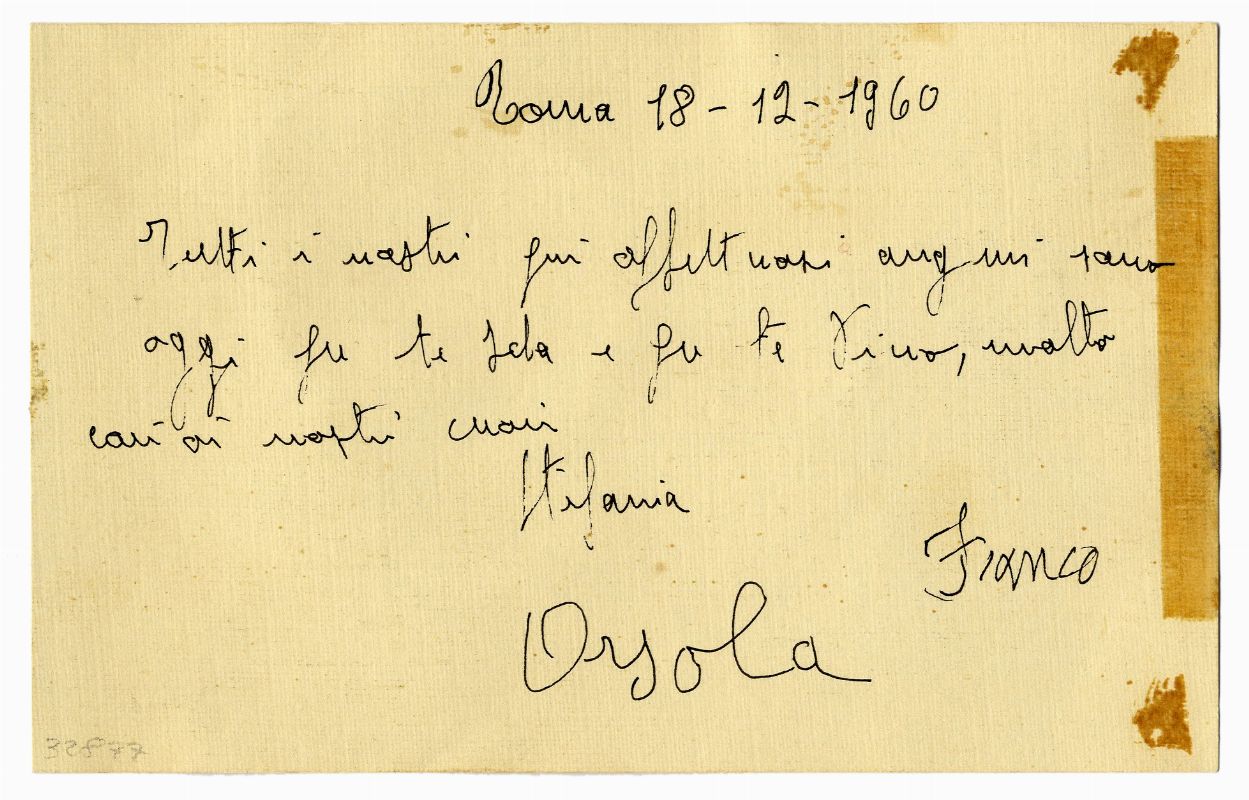 Roma 18-12-1960
Tutti i nostri più affettuosi auguri sono
oggi per te Ida e per te Nino, molto
cari ai nostri cuori
Stefania
Franco
Orsola
32877